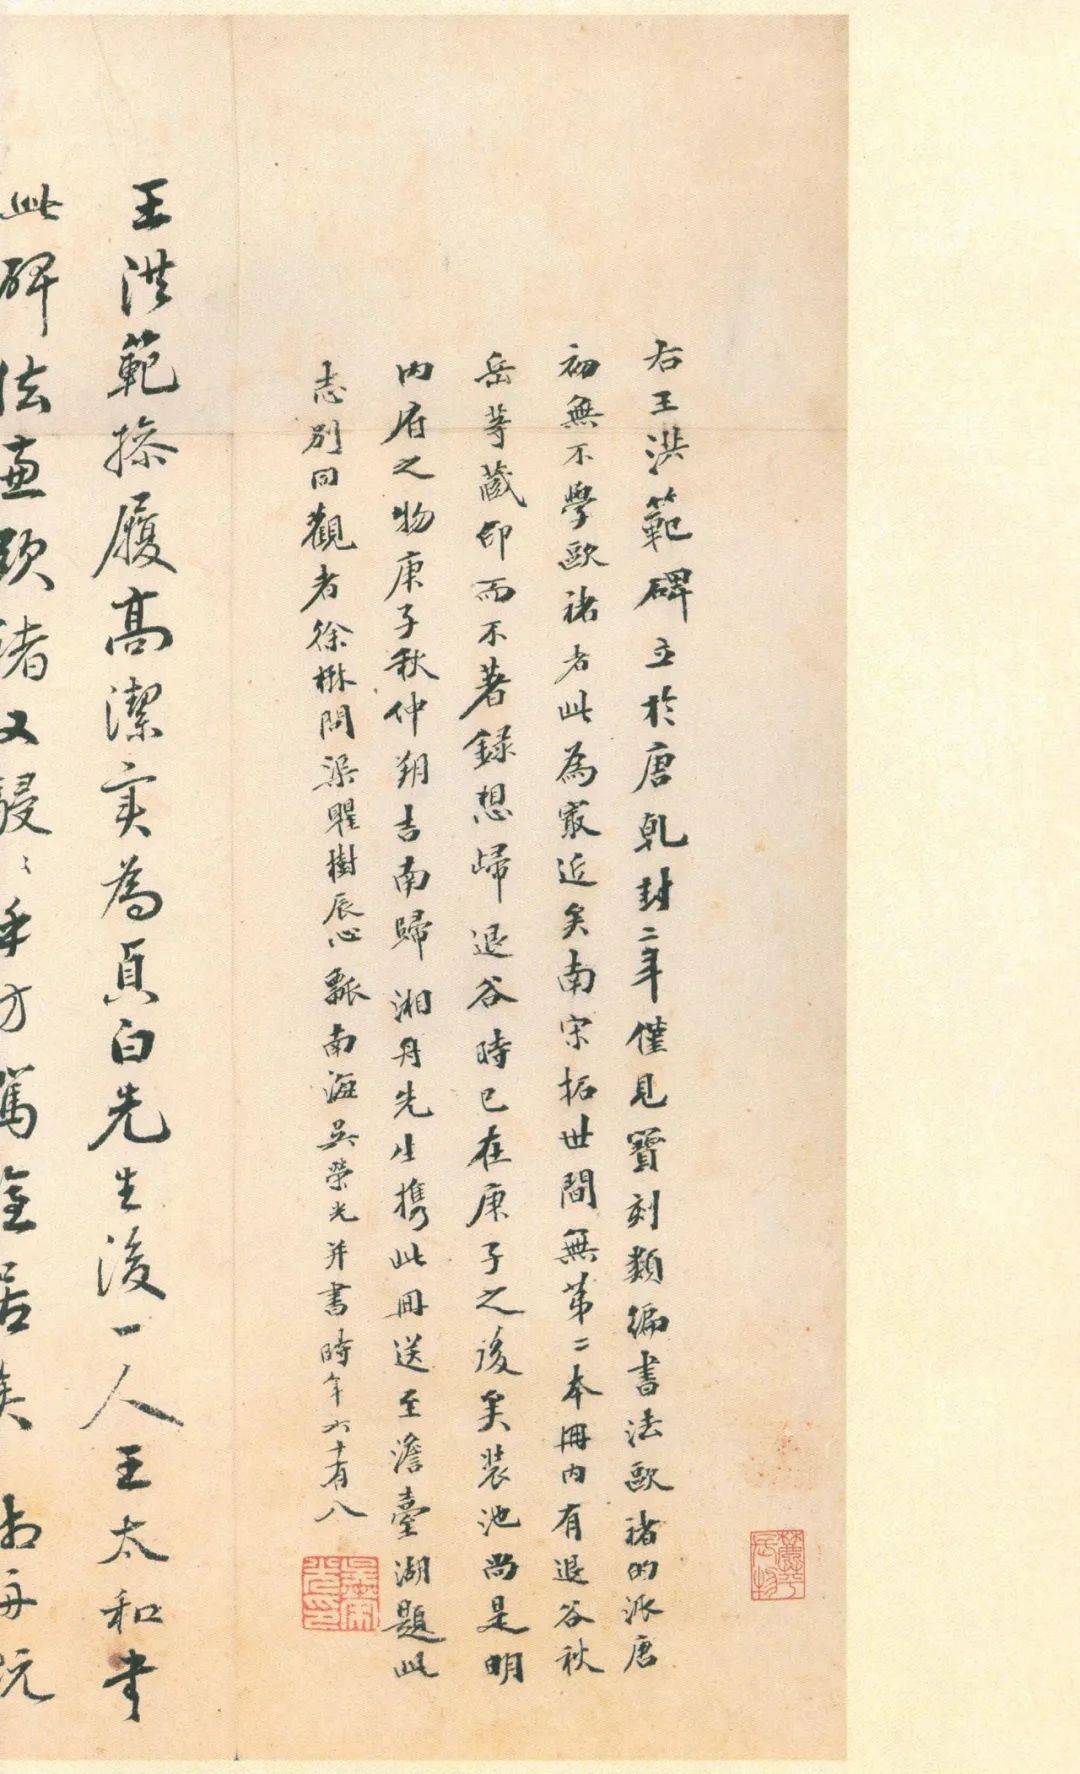 右王洪範碑立於唐乾封二年僅見寶刻類編書法歐褚的派唐
初無不學歐褚者此為最近矣南宋拓世間無第二本冊内有退谷秋
岳等藏印而不著錄想歸退谷時已在庚子之後矣裝池尚是明
内府之物庚子秋仲朔吉南歸湘舟先生携此冊送至澹臺湖題此
志別同觀者徐楙問渠瞿樹辰心瓢南海吳榮光并書時年六十有八
吳榮光印
王洪範操履高潔實為貞白先生後一人王太和書
此碑法兼歐褚又駸〻乎方駕登居矣 湘舟